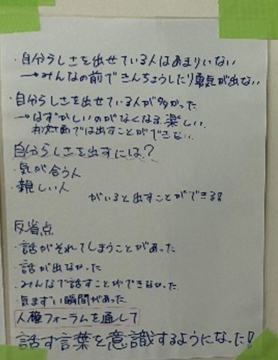 ・自分らしさを出せている人はあまりいない
→みんなの前できんちょうしたり勇気が出ない
・自分らしさを出せている人が多かった
→はずかしいのがなくなる、楽しい
初対面では出すことができない
自分らしさを出すには?
・気が合う人
・親しい人
がいると出すことができる!!
反省点
・話がそれてしまうことがあった
・話が出なかった
・みんなで話すことができなかった
・気まずい瞬間があった
人権フォーラムを通して
話す言葉を意識するようになった!!